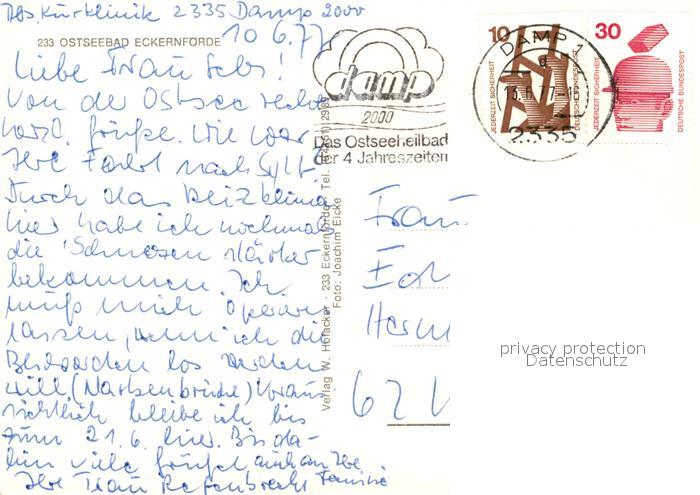 Abs. Kurklinik 2335 Damp 2000
10 6.77
233 OSTSEEBAD ECKERNFÖRDE
Liebe Frau
Von der Ostsee recht
herzl. Grüße. Wie war
Ihre Fahrt nach Sylt.
Durch das Reizklima
hier habe ich nochmals
die Schmerzen stärker
bekommen. Ich
muß mich operieren
lassen, wenn ich die
Beschwerden los werden
will. (Narbenbrüche) Voraus-
sichtlich bleibe ich bis
zum 21.6. hier. Bis da-
hin viele Grüße auch an Ihre
Ihre Frau Familie
Verlag W. Hofacker - 233 Eckernförde - Tel.
Foto: Joachim Eicke
damp
2000
Das Ostseeheilbad
der 4 Jahreszeiten
DAMP 1
2335
10
JEDERZEIT SICHERHEIT
DEUTSCHE BUNDESPOST
30
JEDERZEIT SICHERHEIT
DEUTSCHE BUNDESPOST
Frau
Herm
62
privacy protection
Datenschutz